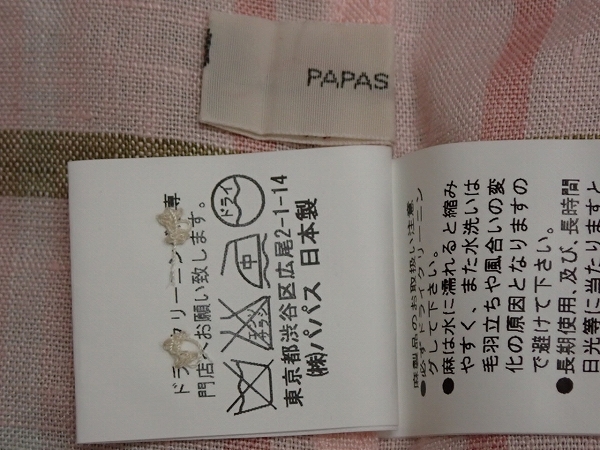 PAPAS
ド
門店へお願い致します。
エンソ
サラシ
中
ドライ
東京都渋谷区広尾2-1-14
(株)パパス 日本製
麻製品のお取扱い注意
●必ずドライクリーニン
グして下さい。
●麻は水に濡れると縮み
やすく、また水洗いは
毛羽立ちや風合いの変
化の原因となりますの
で避けて下さい。
●長期使用、及び、長時間
日光等に当たりますと